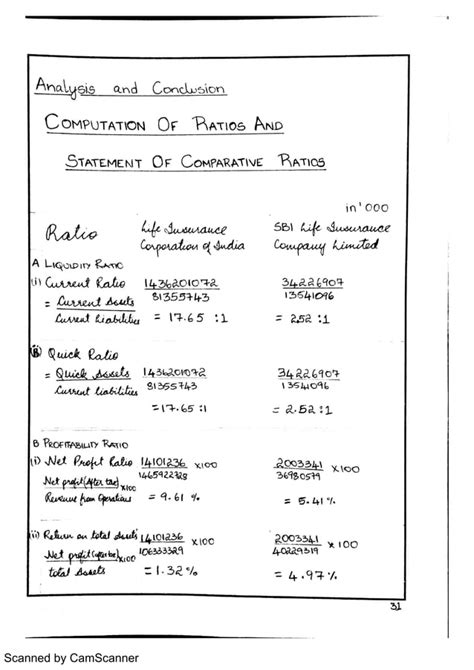 Analysis and Conclusion
COMPUTATION OF RATIOS AND
STATEMENT OF COMPARATIVE RATIOS
in '000
Ratio Life Insurance Corporation of India SBI Life Insurance Company Limited
A LIQUIDITY RATIO
(i) Current Ratio 1436201072 34226907
= Current Assets 81355743 13541096
Current Liabilities = 17.65 :1 = 2.52 :1
(ii) Quick Ratio
= Quick Assets 1436201072 34226907
Current liabilities 81355743 13541096
=17.65 :1 = 2.52:1
B PROFITABILITY RATIO
(i) Net Profit Ratio 14101236 x100 2003341 x100
Net profit (After tax) x100 1465922328 36980579
Revenue from Operations = 9.61 % = 5.41 %
(ii) Return on total Assets 14101236 x100 2003341 x 100
Net profit (after tax) x100 106333329 40229319
total Assets = 1.32 % = 4.97 %
31
Scanned by CamScanner